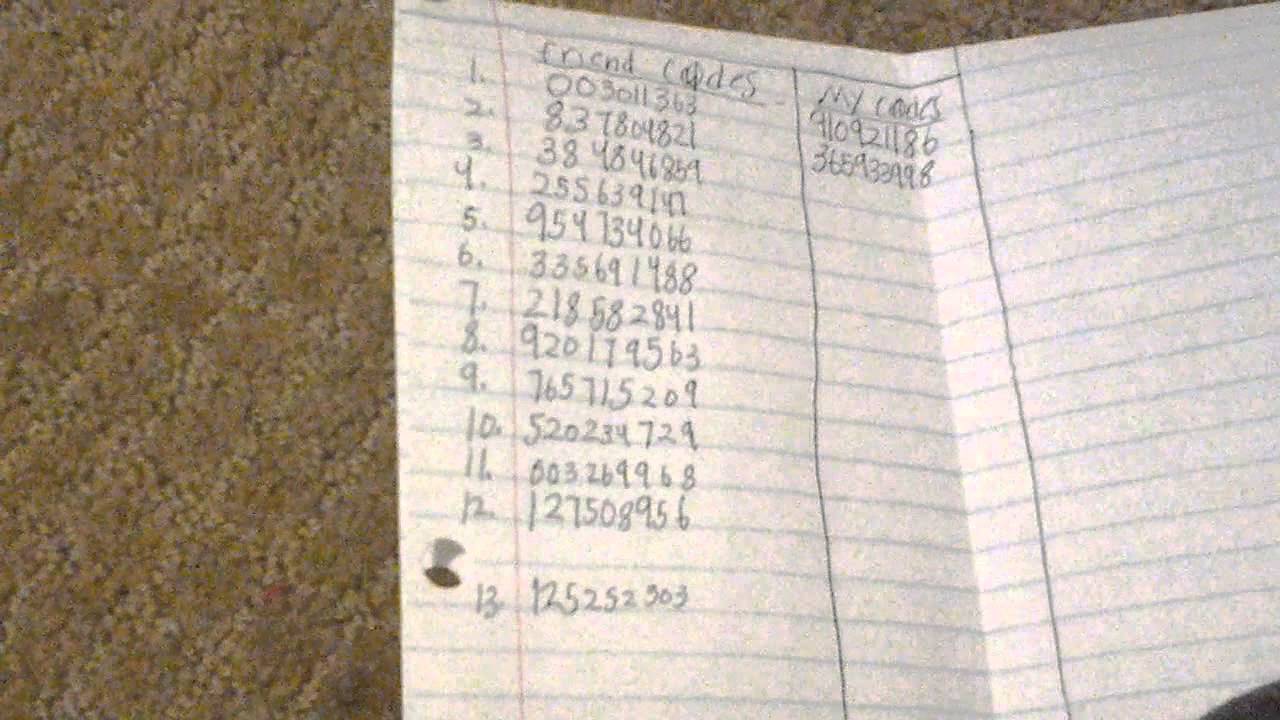 Friend Codes
1. 003011363
2. 837804821
3. 384846859
4. 255639147
5. 954734066
6. 335691488
7. 218582841
8. 920179563
9. 765715209
10. 520234729
11. 003269968
12. 127508956
13. 125252303
My codes
910921186
365933998